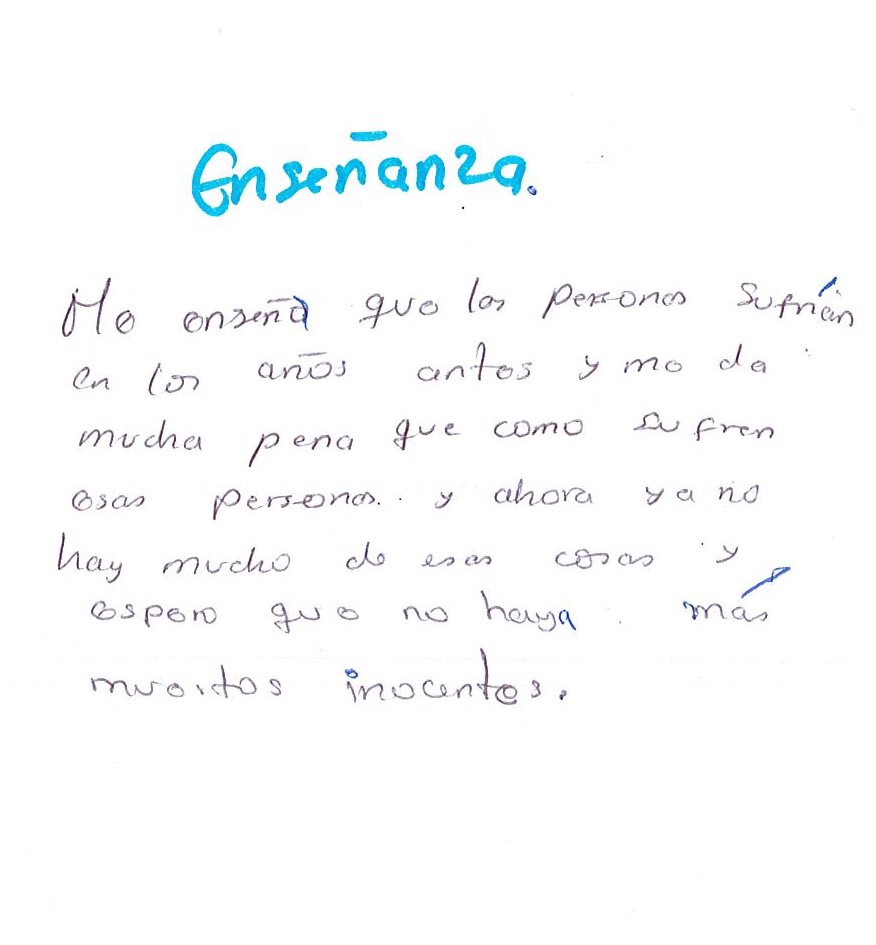 Enseñanza.
Me enseñó que las personas sufrían
en los años antes y me da
mucha pena que como sufren
esas personas. y ahora ya no
hay mucho de esas cosas y
espero que no haya más
muertos inocentes.